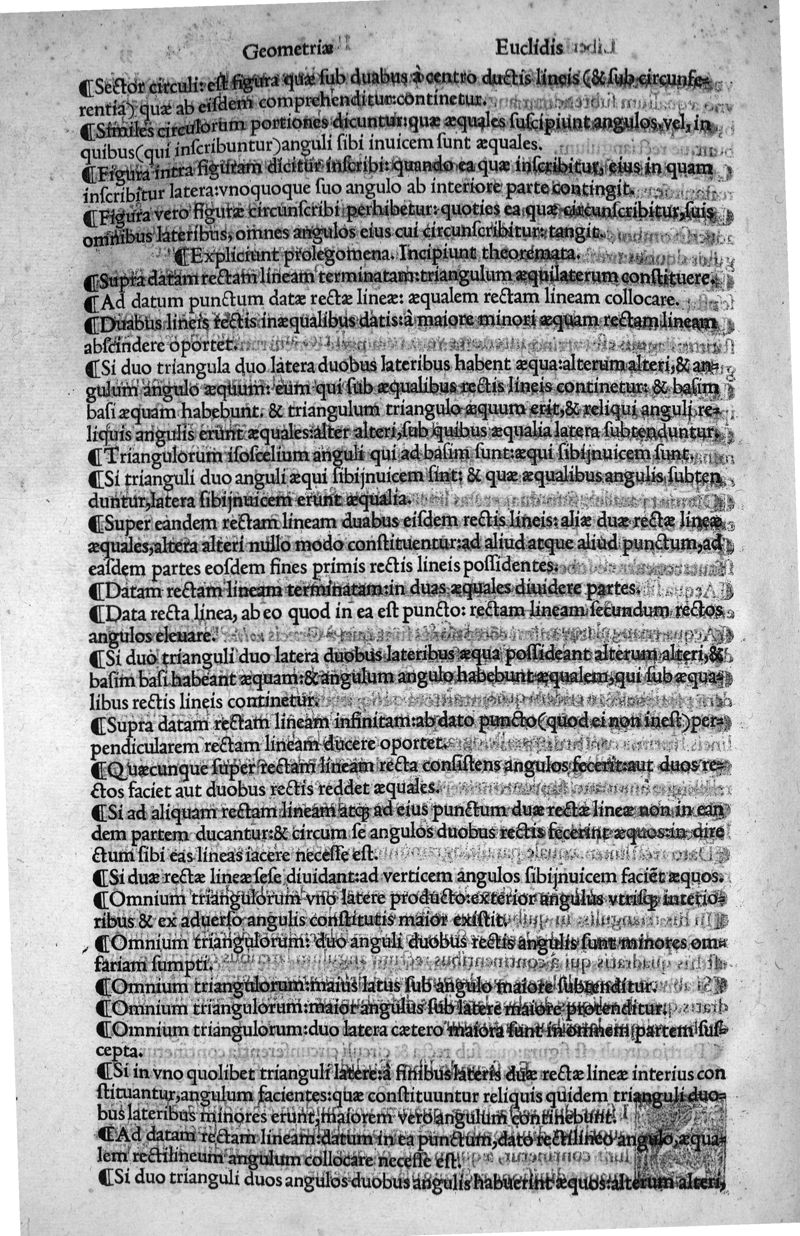 Geometriæ Euclidis
¶Sector circuli: est figura quæ sub duabus à centro ductis lineis (& sub circunfe-
rentia) quæ ab eisdem comprehenditur: continetur.
¶Similes circulorum portiones dicuntur: quæ æquales suscipiunt angulos, vel, in
quibus (qui inscribuntur) anguli sibi inuicem sunt æquales.
¶Figura intra figuram dicitur inscribi: quando ea quæ inscribitur, eius in quam
inscribitur latera: vnoquoque suo angulo ab interiore parte contingit.
¶Figura vero figuræ circunscribi perhibetur: quoties ea quæ circunscribitur, suis
omnibus lateribus, omnes angulos eius cui circunscribitur: tangit.
¶Expliciunt prolegomena. Incipiunt theoremata.
¶Supra datam rectam lineam terminatam: triangulum æquilaterum constituere.
¶Ad datum punctum datæ rectæ lineæ: æqualem rectam lineam collocare.
¶Duabus lineis rectis inæqualibus datis: à maiore minori æquam rectam lineam
abscindere oportet.
¶Si duo triangula duo latera duobus lateribus habent æqua: alterum alteri, & an-
gulum angulo æquum: eum qui sub æqualibus rectis lineis continetur: & basim
basi æquam habebunt. & triangulum triangulo æquum erit, & reliqui anguli re-
liquis angulis erunt æquales: alter alteri, sub quibus æqualia latera subtenduntur.
¶Triangulorum isoscelium anguli qui ad basim sunt: æqui sibijnuicem sunt.
¶Si trianguli duo anguli æqui sibijnuicem sint: & quæ æqualibus angulis subten
duntur, latera sibijnuicem erunt æqualia.
¶Super eandem rectam lineam duabus eisdem rectis lineis: aliæ duæ rectæ lineæ
æquales, altera alteri nullo modo constituentur: ad aliud atque aliud punctum, ad
easdem partes eosdem fines primis rectis lineis possidentes.
¶Datam rectam lineam terminatam: in duas æquales diuidere partes.
¶Data recta linea, ab eo quod in ea est puncto: rectam lineam secundum rectos
angulos eleuare.
¶Si duo trianguli duo latera duobus lateribus æqua possideant alterum alteri, &
basim basi habeant æquam: & angulum angulo habebunt æqualem, qui sub æqua-
libus rectis lineis continetur.
¶Supra datam rectam lineam infinitam: ab dato puncto (quod ei non inest) per-
pendicularem rectam lineam ducere oportet.
¶Quæcunque super rectam lineam recta consistens angulos fecerit: aut duos re-
ctos faciet aut duobus rectis reddet æquales.
¶Si ad aliquam rectam lineam atq; ad eius punctum duæ rectæ lineæ non in ean
dem partem ducantur: & circum se angulos duobus rectis fecerint æquos: in dire
ctum sibi eas lineas iacere necesse est.
¶Si duæ rectæ lineæ sese diuidant: ad verticem angulos sibijnuicem faciēt æquos.
¶Omnium triangulorum vno latere producto: exterior angulus vtrisq; interio-
ribus & ex aduerso angulis constitutis maior existit.
¶Omnium triangulorum: duo anguli duobus rectis angulis sunt minores om-
fariam sumpti.
¶Omnium triangulorum: maius latus sub angulo maiore subtenditur.
¶Omnium triangulorum: maior angulus sub latere maiore protenditur.
¶Omnium triangulorum: duo latera cætero maiora sunt in omnem partem sus-
cepta.
¶Si in vno quolibet trianguli latere: à finibus lateris duæ rectæ lineæ interius con
stituantur, angulum facientes: quæ constituuntur reliquis quidem trianguli duo-
bus lateribus minores erunt, maiorem vero angulum continebunt.
¶Ad datam rectam lineam: datum in ea punctum, dato rectilineo angulo, æqua-
lem rectilineum angulum collocare necesse est.
¶Si duo trianguli duos angulos duobus angulis habuerint æquos: alterum alteri,